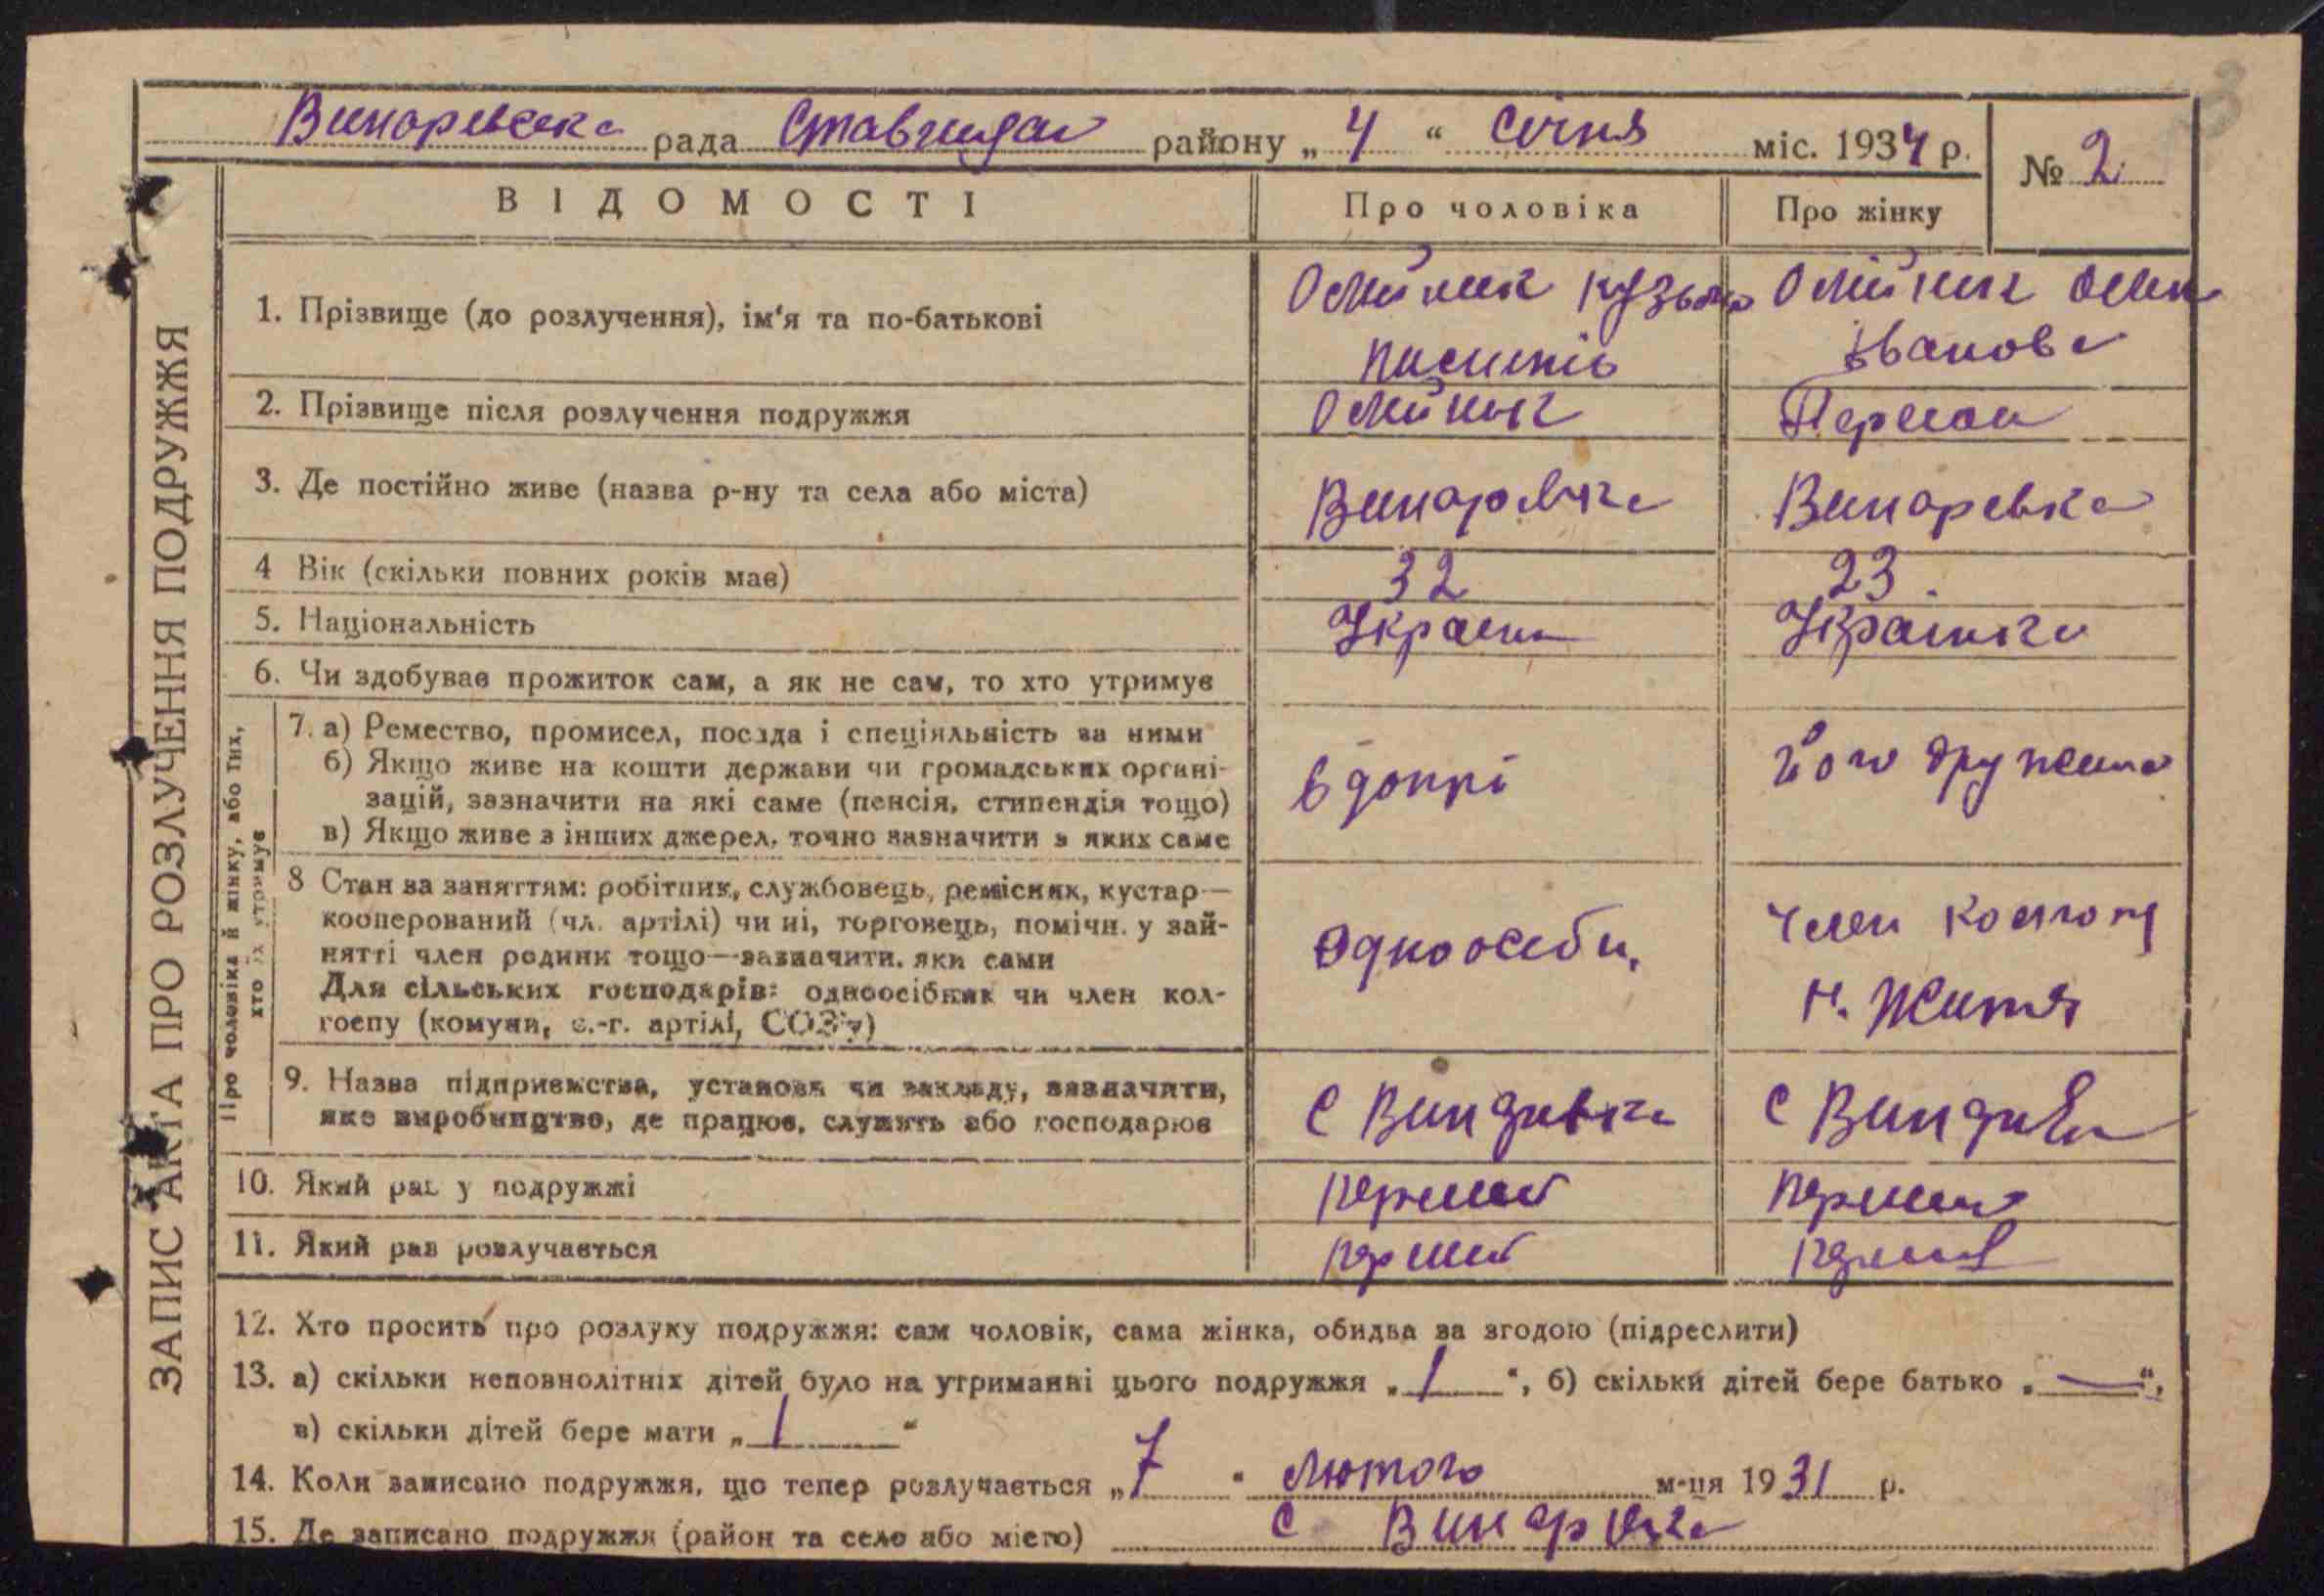 Винаревска рада Ставищан району „ 4 “ Січня міс. 1934 р.
№ 2
ВІДОМОСТІ
Про чоловіка
Про жінку
ЗАПИС АКТА ПРО РОЗЛУЧЕННЯ ПОДРУЖЖЯ
1. Прізвище (до розлучення), ім‘я та по-батькові
Олійник Кузьма
Олійник
Іванова
2. Прізвище після розлучення подружжя
Олійник
3. Де постійно живе (назва р-ну та села або міста)
Винаревка
Винаревка
4 Вік (скільки повних років має)
32
23
5. Національність
Україн
Українка
6. Чи здобуває прожиток сам, а як не сам, то хто утримує
Про чоловіка й жінку, або тих,
хто їх утримує
7. а) Ремество, промисел, посада і спеціяльність за ними
б) Якщо живе на кошти держави чи громадських органі-
зацій, зазначити на які саме (пенсія, стипендія тощо)
в) Якщо живе з інших джерел, точно зазначити з яких саме
в допрі
його дружина
8 Стан за заняттям: робітник, службовець, ремісник, кустар—
кооперований (чл. артілі) чи ні, торговець, помічн. у зай-
нятті член родини тощо—зазначити, яки сами
Для сільських господарів: одноосібник чи член кол-
госпу (комуни, с.-г. артілі, СОЗ‘у)
Одноособн.
Член
н. Життя
9. Назва підприємства, установи чи закладу, зазначити,
яке виробництво, де працює, служить або господарює
с
с
10. Який раз у подружжі
перший
перший
11. Який раз розлучається
перший
перший
12. Хто просить про розлуку подружжя: сам чоловік, сама жінка, обидва за згодою (підреслити)
13. а) скільки неповнолітніх дітей було на утриманні цього подружжя „ 1 “, б) скільки дітей бере батько „ — “,
в) скільки дітей бере мати „ 1 “
14. Коли записано подружжя, що тепер розлучається „ 7 “ Лютого м-ця 1931 р.
15. Де записано подружжя (район та село або місто) с Винаревка